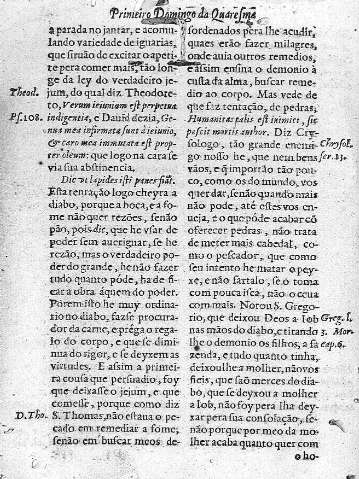 Primeiro Domingo da Quaresma
a parada no jantar, e acumu-
lando variedade de iguarias,
que siruão de excitar o apeti-
te pera comer mais, tão lon-
ge da ley do verdadeiro je-
Theod. jum, do qual diz Theodore-
to, Verum ieiunium est perpetua
Ps. 108. indigentia, e Dauid dezia, Ge-
nua mea infirmata sunt à ieiunio,
& caro mea immutata est prop-
ter oleum: que logo na cara se
via sua abstinencia.
Dic vt lapides isti panes fiāt.
Esta tentação logo cheyra a
diabo, porque a boca, e a fo-
me não quer rezões, senão
pão, pois dic, que he vsar de
poder sem auerignar, se he
rezão, mas o verdadeiro po-
der do grande, he não fazer
tudo quanto póde, ha de fi-
car a obra àquem do poder.
Porem isto he muy ordina-
rio no diabo, fazse procura-
dor da carne, e préga o rega-
lo do corpo, e que se dimi-
nua do rigor, e se deyxem as
virtudes. E assim a primeira
cousa que persuadio, foy
que deixasse o jejum, e que
comesse, porque como diz
D. Tho. S. Thomas, não estaua o pe-
cado em remediar a fome,
senão em buscar meos de-
sordenados pera lhe acudir,
quaes erão fazer milagres,
onde auia outros remedios,
e assim ensina o demonio à
custa da alma, buscar reme-
dio ao corpo. Mas vede de
que faz tentação, de pedras,
Humanitas talis est inimici, sic
pascit mortis author. Diz Cry-
Chrysol. sologo, tão grande enemi-
ser. 13. go nosso he, que nem bens
vãos, e q̃ importão tão pou-
co, como os do mundo, vos
quer dar, senão quando mais
não póde, até estes vos en-
ueja, e o que póde acabar cõ
oferecer pedras, não trata
de meter mais cabedal, co-
mo o pescador, que como
seu intento he matar o pey-
xe, e não fartalo, se o toma
com pouca isca, não o ceua
com mais. Notou S. Grego-
rio, que deixou Deos a Iob Greg. l.
nas mãos do diabo, e tirando 3. Mor.
lhe o demonio os filhos, a fa cap. 6.
zenda, e tudo quanto tinha,
deixoulhe a molher, não vos
fieis, que são merces do dia-
bo, que se deyxou a molher
a Iob, não foy pera lha dey-
xar pera sua consolação, se-
não porque por meo da mo-
lher acaba quanto quer com
o ho-